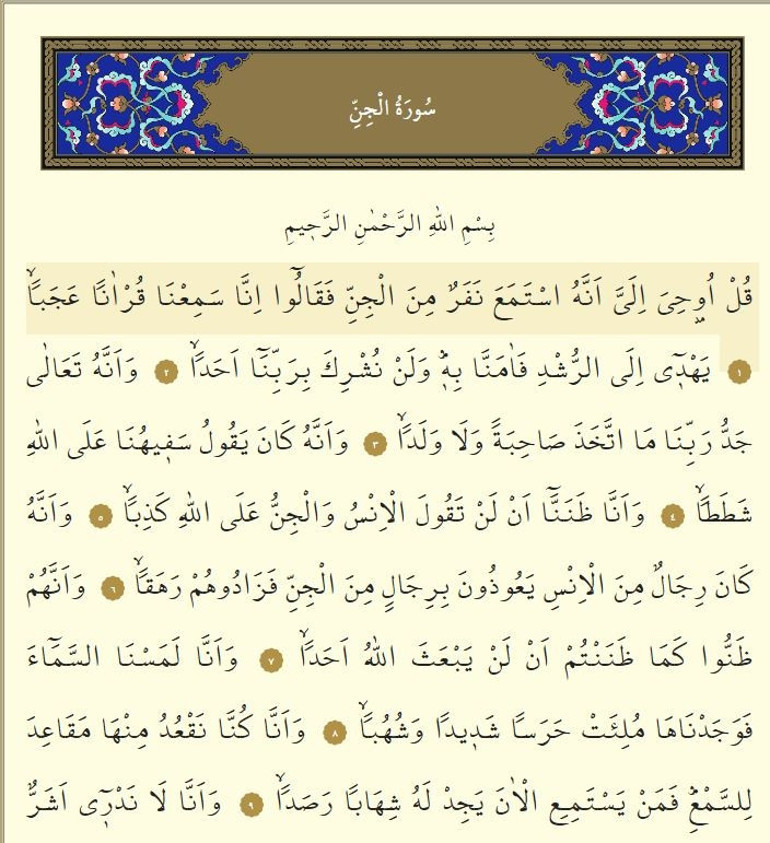 سُورَةُ الْجِنِّ
بِسْمِ اللهِ الرَّحْمٰنِ الرَّح۪يمِ
قُلْ اُو۫حِيَ اِلَيَّ اَنَّهُ اسْتَمَعَ نَفَرٌ مِنَ الْجِنِّ فَقَالُٓوا اِنَّا سَمِعْنَا قُرْاٰنًا عَجَبًاۙ
١ يَهْد۪ٓي اِلَى الرُّشْدِ فَاٰمَنَّا بِه۪ۜ وَلَنْ نُشْرِكَ بِرَبِّنَٓا اَحَدًاۙ ٢ وَاَنَّهُ تَعَالٰى
جَدُّ رَبِّنَا مَا اتَّخَذَ صَاحِبَةً وَلَا وَلَدًاۙ ٣ وَاَنَّهُ كَانَ يَقُولُ سَف۪يهُنَا عَلَى اللهِ
شَطَطًاۙ ٤ وَاَنَّا ظَنَنَّٓا اَنْ لَنْ تَقُولَ الْاِنْسُ وَالْجِنُّ عَلَى اللهِ كَذِبًاۙ ٥ وَاَنَّهُ
كَانَ رِجَالٌ مِنَ الْاِنْسِ يَعُوذُونَ بِرِجَالٍ مِنَ الْجِنِّ فَزَادُوهُمْ رَهَقًاۙ ٦ وَاَنَّهُمْ
ظَنُّوا كَمَا ظَنَنْتُمْ اَنْ لَنْ يَبْعَثَ اللهُ اَحَدًاۙ ٧ وَاَنَّا لَمَسْنَا السَّمَٓاءَ
فَوَجَدْنَاهَا مُلِئَتْ حَرَسًا شَد۪يدًا وَشُهُبًاۙ ٨ وَاَنَّا كُنَّا نَقْعُدُ مِنْهَا مَقَاعِدَ
لِلسَّمْعِۜ فَمَنْ يَسْتَمِعِ الْاٰنَ يَجِدْ لَهُ شِهَابًا رَصَدًاۙ ٩ وَاَنَّا لَا نَدْر۪ٓي اَشَرٌّ